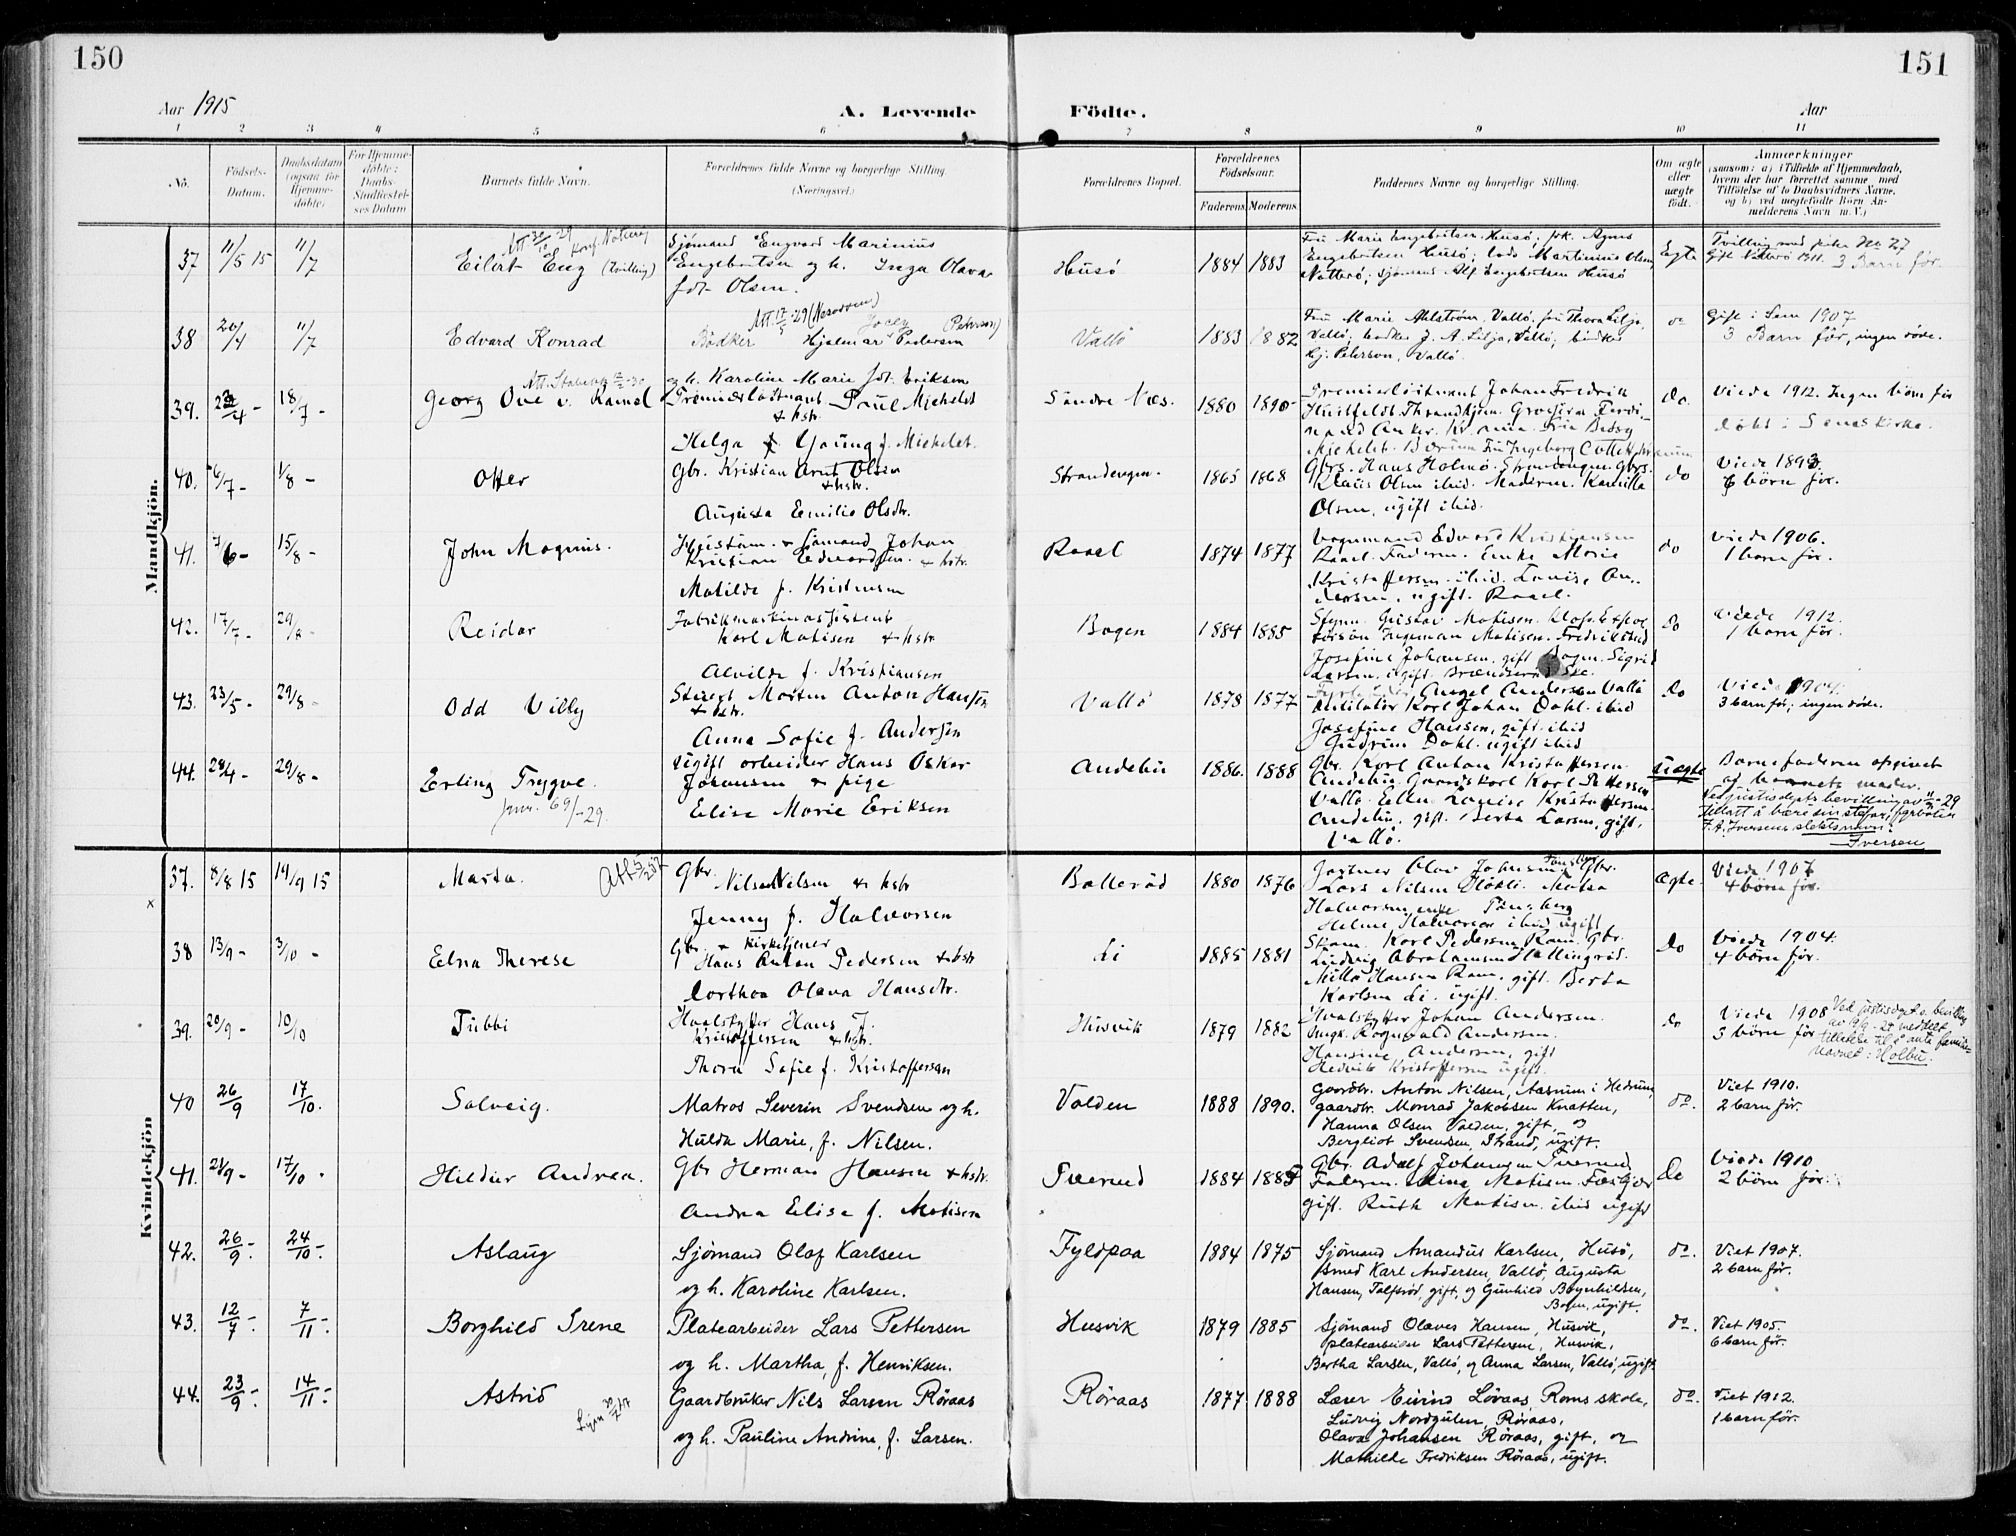 150
151
Aar 1915
A. Levende
Födte.
Aar
1 2 3 4 5 6 7 8 9 10 11
No.
Födsels-
Datum.
Daabsdatum
(ogsaa for
Hjemme-
döbte)
For Hjemme-
döbte:
Daabs-
Stadfæstel-
ses Datum
Barnets fulde Navn.
Forældrenes fulde Navne og borgerlige Stilling.
(Næringsvei.)
Forældrenes Bopæl.
Forældrenes
Födselsaar.
Faderens Moderens
Faddernes Navne og borgerlige Stilling.
Om ægte
eller
uægte
födt.
Anmærkninger
(saasom: a) i Tilfælde af Hjemmedaab,
hvem der har forrettet samme med
Tilföielse af to Daabsvidners Navne,
og b) ved uægtefödte Börn An-
melderens Navn m. V.)
Mandkjön.
37 11/5 15 11/7
Eilert Eng (tvilling)
Sjömand Engvard Marinius
Engebretsen og h. Inga Olava
fdt. Olsen.
Husö
1884 1883
Fru Marie Engebretsen Husö; frk. Agnes
Engebretsen Husö; Martinius Olsen,
Natterö; Sjömand Alf Engebretsen Husö
Egte
Tvilling med pike No 27
Gift Nötterö 1911. 3 Barn før.
38 20/4 11/7
Edvard Konrad
Att. 17/5-29 (Nesodden)
Bödker Hjalmar Pedersen
(Peterson)
og h. Karoline Marie fdt. Eriksen
Vallö
1883 1882
Fru Marie Ahlström, Vallö, fru Thora Lilja,
Vallö; bödker J. A. Lilja, Vallö; bödker
Hj. Peterson, Vallö.
do
Gift i Sem 1907
3 Barn før, ingen døde.
39. 23/4 - 18/7 -
Georg Ove v. Ramel
Premierlöitnant Poul Michelet
& hstr.
Helga Young f. Michelet.
Söndre Næs.
1880 1890
Premierlöitnant Johan Fredrik
Huitfeldt. Throndhjem. Grosserer Ferdi-
nand Anker. Kr.ania. Frue Betsy
Michelet. Bærum Fru Ingeborg
do.
Viede 1912. Ingen børn før
döbt i Sems Kirke.
40. 6/7 - 1/8 -
Otter
Gbr. Kristian Arnt Olsen
& hstr.
Augusta Emilie Olsdtr.
Strandengen.
1865 1868
Gbrs. Hans Holmö. Strandengen. Gbrs.
Klaus Olsen ibid. Moderen. Kamilla
Olsen, ugift ibid.
do
Viede 1893
6 børn før.
41. 7/6 - 15/8 -
John Magnus.
Hustüm. & Sømand Johan
Kristian Edvardsen. & hstr.
Matilde f. Kristensen
Rael
1874 1877
Vognmand Edvard Kristiansen
Rael. Faderen. Enke Marie
Kristoffersen ibid. Lovise An-
dersen, ugift. Rael.
do
Viede 1906.
1 barn før.
42. 17/7 - 29/8 -
Reidar
Fabrikmaskinassistent
Karl Matisen & hstr
Alvilde f. Kristiansen
Bogen
1884 1885
Styrm. Gustav Matisen.
Ingeman Matisen. Fredrikstad
Josefine Johansen. gift Bogen. Sigrid
Larsen. ugift.
do
Viede 1912.
1 barn før.
43. 23/5 - 29/8 -
Odd Villy
Stuert Morten Anton Hansen
& hstr.
Anna Sofie f. Andersen
Vallö
1878 1877
Angel Andersen Vallö
Karl Johan Dahl. ibid
Josefine Hansen, gift. ibid
Gudrun Dahl. ugift ibid
do
Viede 1904.
3 barn før, ingen døde.
44. 28/4 - 29/8 -
Erling Trygve.
Jour. 69/-29.
Ugift arbeider Hans Oskar
Johansen & pige
Elise Marie Eriksen
Andebu
1886. 1888
Gbr. Karl Anton Kristoffersen.
Andebu. Gaardskarl Karl Pettersen
Vallö. Ellen Lovise Kristoffersen.
Andebu. gift. Berta Larsen, gift.
Vallö.
Uægte
Barnefaderen opgivet
af barnets moder.
Ved justisdepts bevilling av 11/1-29
tillatt å bære sin stefar, fyrböter
F. A. Iversens slektsnavn:
Iversen
Kvindekjön
37. 8/8 15 19/9 15
Marta.
Gbr.
Nils Nilsen & hstr
Jenny f. Halvorsen
Ballerød
1880 1876
Gartner Olav Johnsen Tønsberg. Gbr.
Lars Nilsen Marta
Halvorsen enke Tønsberg
Helene Halvorsen ibid ugift
Ægte.
Viede 1907
4 børn før.
x
38 13/9 - 3/10 -
Edna Therese
Gbr. & Kirketjener
Hans Anton Pedersen & hstr
Dorthea Olava Hansdtr.
Li
1885 1881
Skom. Karl Pedersen Ram. Gbr.
Ludvig Abrahamsen Hallingrød.
Milla Hansen Ram, gift. Berta
Karlsen Li. ugift.
Do
Viede 1904.
4 børn før.
39. 20/9 - 10/10
Tubbi
Hvalskytter Hans J.
Kristoffersen & hstr.
Thora Sofie f. Kristoffersen
Husvik
1879 1882
Hvalskytter Johan Andersen.
Ungk. Ragnvald Andersen.
Hansine Andersen, gift
Hedvik Kristoffersen ugift.
do
Viede 1908
3 børn før
Ved justisdept.s. bevilling
av 9/9 - 24 meddelt
tillatelse til å anta familie-
navnet: Holbu.
40 26/9 17/10.
Solveig.
Matros Severin Svendsen og h.
Hulda Marie, f. Nilsen.
Volden
1888 1890.
Gaardbr. Anton Nilsen, Aasrum i Hedrum,
gaardbr. Monrad Jakobsen Knatten,
Hanna Olsen Volden, gift, og
Bergliot Svendsen, Strand, ugift.
do.
Viet 1910.
2 barn før.
41. 21/9 - 17/10 -
Hildur Andrea.
Gbr Herman Hansen & hstr.
Andrea Elise f. Matisen
Tverved
1884 1885
Gbr. Adolf Johansen Tverved
Faderen. Mina Matisen.
gift. Ruth Matisen. ibid ugift
Do
Viede 1910
2 børn før.
42. 26/9 - 24/10 -
Aslaug
Sjömand Olaf Karlsen
og h. Karoline Karlsen.
Fyldpaa
1884 1875
Sjömand Amandus Karlsen, Husö,
smed Karl Andersen, Vallö, Augusta
Hansen, Tolfsröd, gift, og Gunhild Bøynhildsen,
Bogen, ugift.
do.
Viet 1907.
2 barn før.
43. 12/7 - 7/11 -
Borghild Irene
Platearbeider Lars Pettersen
og h. Martha, f. Henriksen.
Husvik
1879 1885
Sjömand Olaves Hansen, Husvik,
platearbeider Lars Pettersen, Husvik,
Bertha Larsen, Vallö, og Anna Larsen, Vallö, ugift.
do.
Viet 1905.
6 barn før.
44. 23/9 - 14/11 -
Astrid
Gaardbruker Nils Larsen Røraas
og h. Pauline Andrine, f. Larsen.
Røraas
1877 1888
Lærer Eivind Løvaas, Roms skole,
Ludvig Nordgulen, Røraas,
Olava Johansen Røraas, gift, og
Mathilde Fredriksen Røraas, ugift.
do.
Viet 1912.
1 barn før.